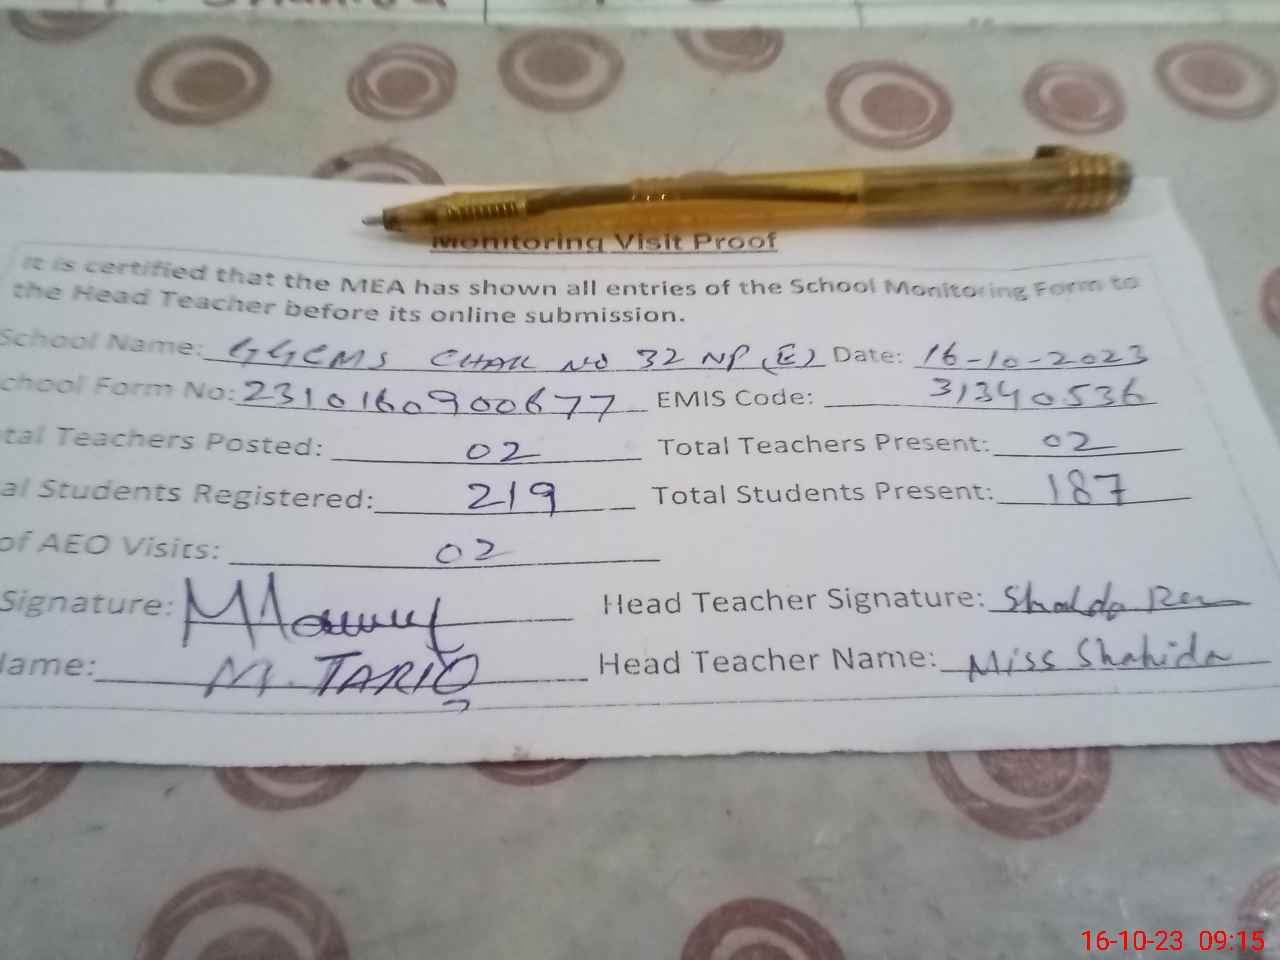 Monitoring Visit Proof
It is certified that the MEA has shown all entries of the School Monitoring Form to
the Head Teacher before its online submission.
School Name: GGCMS CHAK NO 32 NP (E) Date: 16-10-2023
chool Form No: 2310160900677 EMIS Code: 31340536
tal Teachers Posted: 02 Total Teachers Present: 02
al Students Registered: 219 Total Students Present: 187
of AEO Visits: 02
Signature: Head Teacher Signature:
Name: M. TARIQ Head Teacher Name: Miss Shahida
16-10-23 09:15